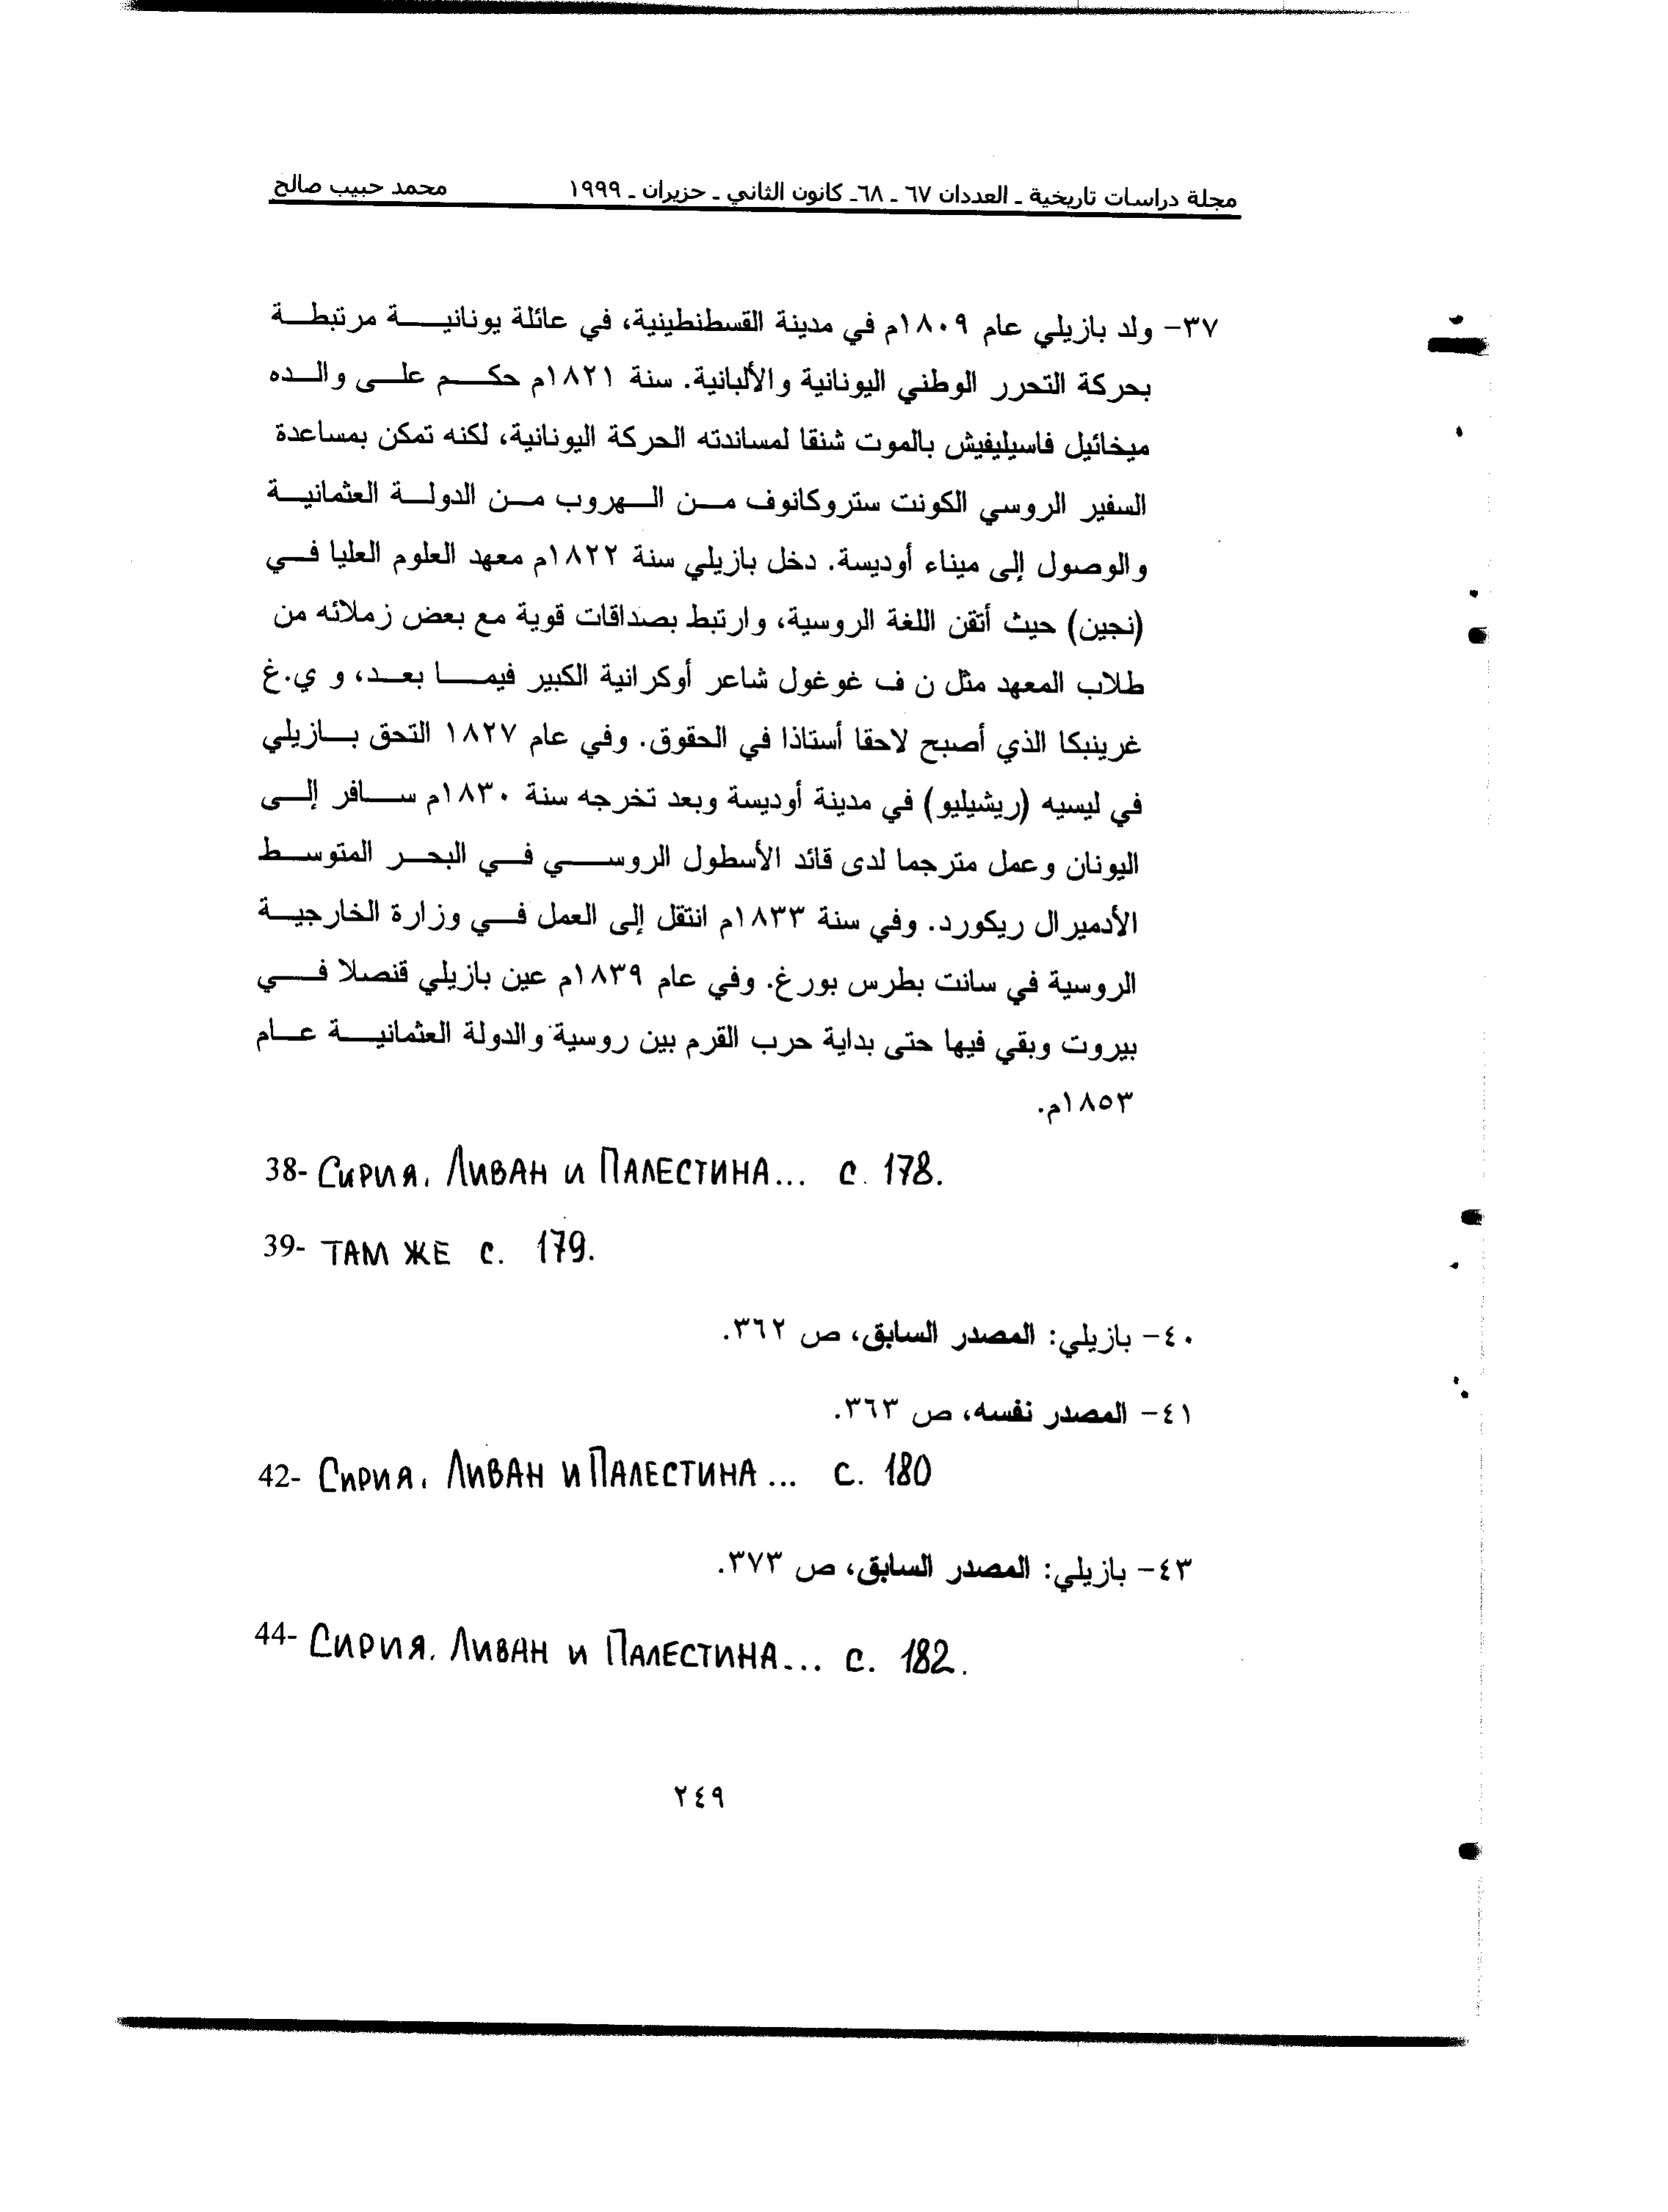 مجلة دراسات تاريخية ـ العددان ٦٧ ـ ٦٨ـ كانون الثاني ـ حزيران ـ ١٩٩٩ محمد حبيب صالح
٣٧- ولد بازيلي عام ١٨٠٩م في مدينة القسطنطينية، في عائلة يونانية مرتبطة
بحركة التحرر الوطني اليونانية والألبانية. سنة ١٨٢١م حكم على والده
ميخائيل فاسيليفيش بالموت شنقا لمساندته الحركة اليونانية، لكنه تمكن بمساعدة
السفير الروسي الكونت ستروكانوف من الهروب من الدولة العثمانية
والوصول إلى ميناء أوديسة. دخل بازيلي سنة ١٨٢٢م معهد العلوم العليا في
(نجين) حيث أتقن اللغة الروسية، وارتبط بصداقات قوية مع بعض زملائه من
طلاب المعهد مثل ن ف غوغول شاعر أوكرانية الكبير فيما بعد، و ي.غ
غرينبكا الذي أصبح لاحقا أستاذا في الحقوق. وفي عام ١٨٢٧ التحق بازيلي
في ليسيه (ريشيليو) في مدينة أوديسة وبعد تخرجه سنة ١٨٣٠م سافر إلى
اليونان وعمل مترجما لدى قائد الأسطول الروسي في البحر المتوسط
الأدميرال ريكورد. وفي سنة ١٨٣٣م انتقل إلى العمل في وزارة الخارجية
الروسية في سانت بطرس بورغ. وفي عام ١٨٣٩م عين بازيلي قنصلا في
بيروت وبقي فيها حتى بداية حرب القرم بين روسية والدولة العثمانية عام
١٨٥٣م.
38- Сирия. Ливан и Палестина... с. 178.
39- ТАМ ЖЕ с. 179.
٤٠- بازيلي: المصدر السابق، ص ٣٦٢.
٤١- المصدر نفسه، ص ٣٦٣.
42- Сирия. Ливан и Палестина... с. 180
٤٣- بازيلي: المصدر السابق، ص ٣٧٣.
44- Сирия. Ливан и Палестина... с. 182.
٢٤٩